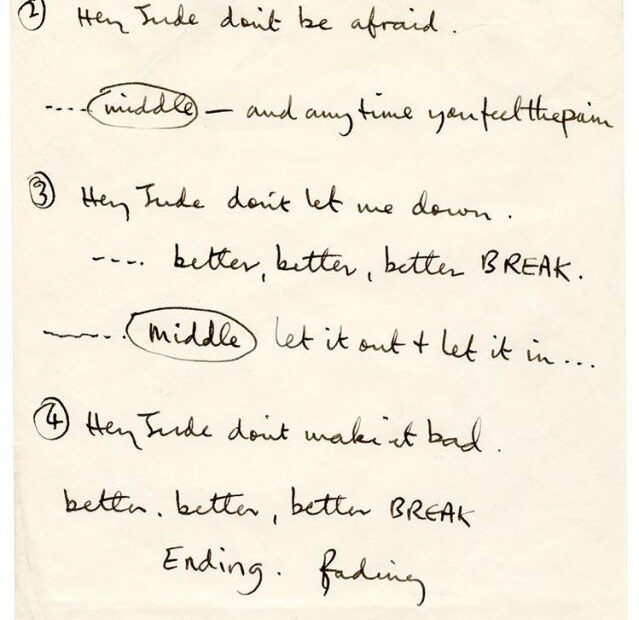 ② Hey Jude don't be afraid.
.... middle — and any time you feel the pain
③ Hey Jude don't let me down.
---. better, better, better BREAK.
middle let it out + let it in...
④ Hey Jude dont make it bad.
better. better, better BREAK
Ending. fading